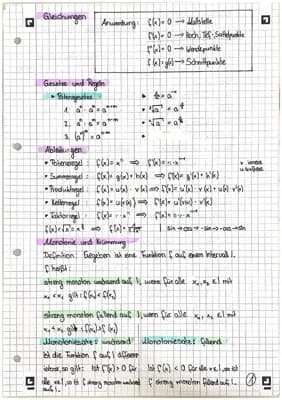 Gleichungen
Anwendung: f(x) = 0 → Nullstelle
f'(x) = 0 → Hoch, Tief, Sattelpunkte
f''(x) = 0 → Wendepunkte
f(x) = g(x) → Schnittpunkte
Gesetze und Regeln
• Potenzgesetze
1. aⁿ · aᵐ = aⁿ⁺ᵐ
3. (aⁿ)ᵐ = aⁿ·ᵐ
Ableitungen
• Potenzregel f(x) = xⁿ ⇒ f'(x) = n · xⁿ⁻¹
• Summenregel: f(x) = g(x) + h(x) ⇒ f'(x) = g'(x) + h'(x)
• Produktregel: f(x) = u(x) · v(x) ⇒ f'(x) = u'(x) · v(x) + u(x) · v'(x)
• Kettenregel f(x) = u(v(x)) ⇒ f'(x) = u'(v(x)) · v'(x)
• Faktorregel
sin → cos → -sin → -cos → sin
Monotonie und Krümmung
Definition: Gegeben ist eine Funktion f auf einem Intervall I.
f heißt:
streng monoton wachsend auf I, wenn für alle x₁, x₂ ∈ I mit
x₁ < x₂ gilt: f(x₁) < f(x₂)
streng monoton fallend auf I, wenn für alle x₁, x₂ ∈ I mit
x₁ < x₂ gilt: f(x₁) > f(x₂)
Monotoniesatz: wachsend Monotoniesatz: fallend
Ist die Funktion f auf I
gilt: Ist f'(x) > 0 für Ist f'(x) < 0 für alle x∈I, so ist
alle x∈I, so ist f streng monoton f streng monoton fallend auf I.